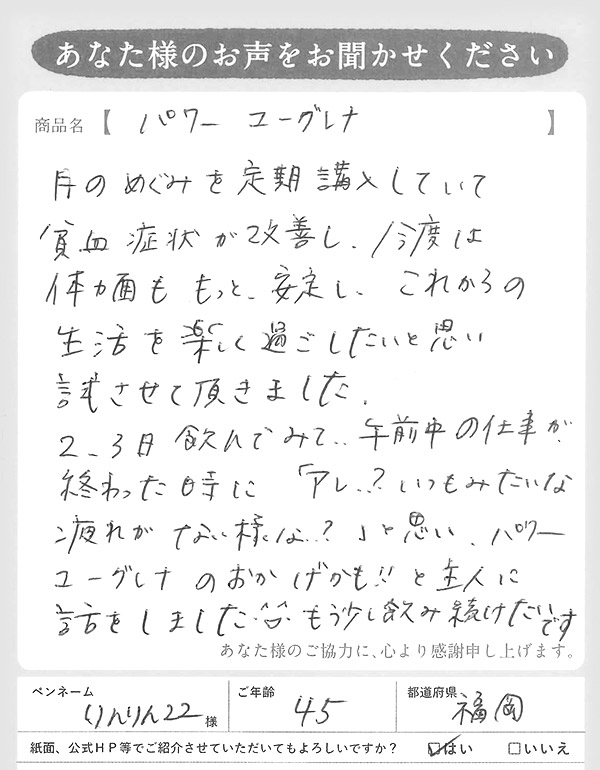 あなた様のお声をお聞かせください
商品名【 パワー ユーグレナ 】
月のめぐみを定期講入していて
貧血症状が改善し、今度は
体力面ももっと、安定し、これからの
生活を楽しく過ごしたいと思い
試させて頂きました。
2、3日飲んでみて、、午前中の仕事が
終わった時に「アレ..?いつもみたいな
疲れがない様な..?」と思い、パワー
ユーグレナのおかげかも!!と主人に
話をしました^^。もう少し飲み続けたいです
あなた様のご協力に、心より感謝申し上げます。
ペンネーム りんりん22様 ご年齢 45 都道府県 福岡
紙面、公式HP等でご紹介させていただいてもよろしいですか? ☑はい □いいえ